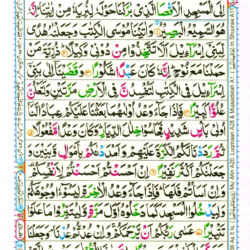 إِلَى الْمَسْجِدِ الْأَقْصَا الَّذِي بٰرَكْنَا حَوْلَهُ لِنُرِيَهُ مِنْ اٰيٰتِنَا اِنَّهُ
هُوَ السَّمِيعُ الْبَصِيرُ وَاٰتَيْنَا مُوسَى الْكِتٰبَ وَجَعَلْنٰهُ هُدًى
لِّبَنِي اِسْرَاءِيلَ اَلَّا تَتَّخِذُوا مِنْ دُونِي وَكِيلًا ذُرِّيَّةَ مَنْ
حَمَلْنَا مَعَ نُوحٍ اِنَّهُ كَانَ عَبْدًا شَكُورًا وَقَضَيْنَا اِلٰى بَنِي
اِسْرَاءِيلَ فِي الْكِتٰبِ لَتُفْسِدُنَّ فِي الْاَرْضِ مَرَّتَيْنِ وَلَتَعْلُنَّ عُلُوًّا
كَبِيرًا فَاِذَا جَاءَ وَعْدُ اُولٰىهُمَا بَعَثْنَا عَلَيْكُمْ عِبَادًا لَّنَا
اُولِي بَاْسٍ شَدِيدٍ فَجَاسُوا خِلٰلَ الدِّيَارِ وَكَانَ وَعْدًا مَّفْعُولًا
ثُمَّ رَدَدْنَا لَكُمُ الْكَرَّةَ عَلَيْهِمْ وَاَمْدَدْنٰكُمْ بِاَمْوَالٍ وَّبَنِينَ وَ
جَعَلْنٰكُمْ اَكْثَرَ نَفِيرًا اِنْ اَحْسَنْتُمْ اَحْسَنْتُمْ لِاَنْفُسِكُمْ
وَاِنْ اَسَاْتُمْ فَلَهَا فَاِذَا جَاءَ وَعْدُ الْاٰخِرَةِ لِيَسُوءُوا وُجُوهَكُمْ
وَلِيَدْخُلُوا الْمَسْجِدَ كَمَا دَخَلُوهُ اَوَّلَ مَرَّةٍ وَّلِيُتَبِّرُوا مَا عَلَوْا
تَتْبِيرًا عَسٰى رَبُّكُمْ اَنْ يَّرْحَمَكُمْ وَاِنْ عُدْتُّمْ عُدْنَا وَجَعَلْنَا